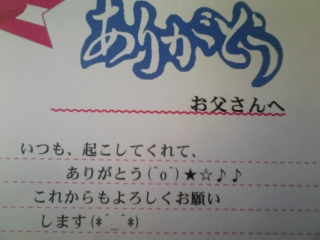 ありがとう
お父さんへ
いつも、起こしてくれて、
ありがとう(^o^)★☆♪♪
これからもよろしくお願い
します(*^_^*)